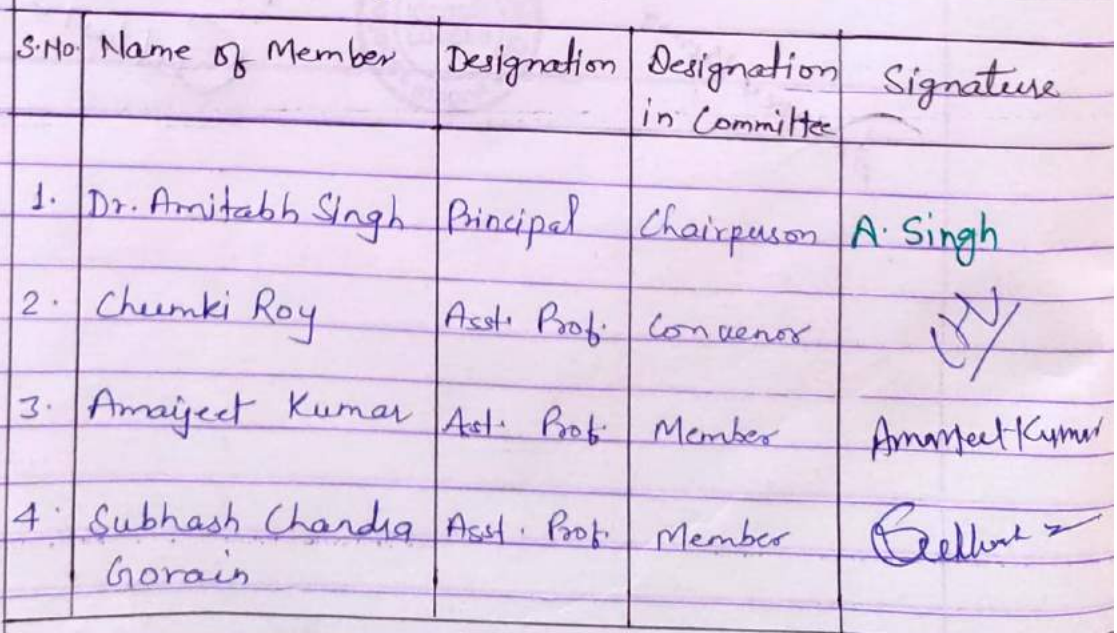 S.No. Name of Member Designation Designation in Committee Signature
1. Dr. Amitabh Singh Principal Chairperson A. Singh
2. Chumki Roy Asst. Prof. Convenor
3. Amarjeet Kumar Ast. Prof. Member Amarjeet Kumar
4. Subhash Chandra Asst. Prof. Member
Gorain